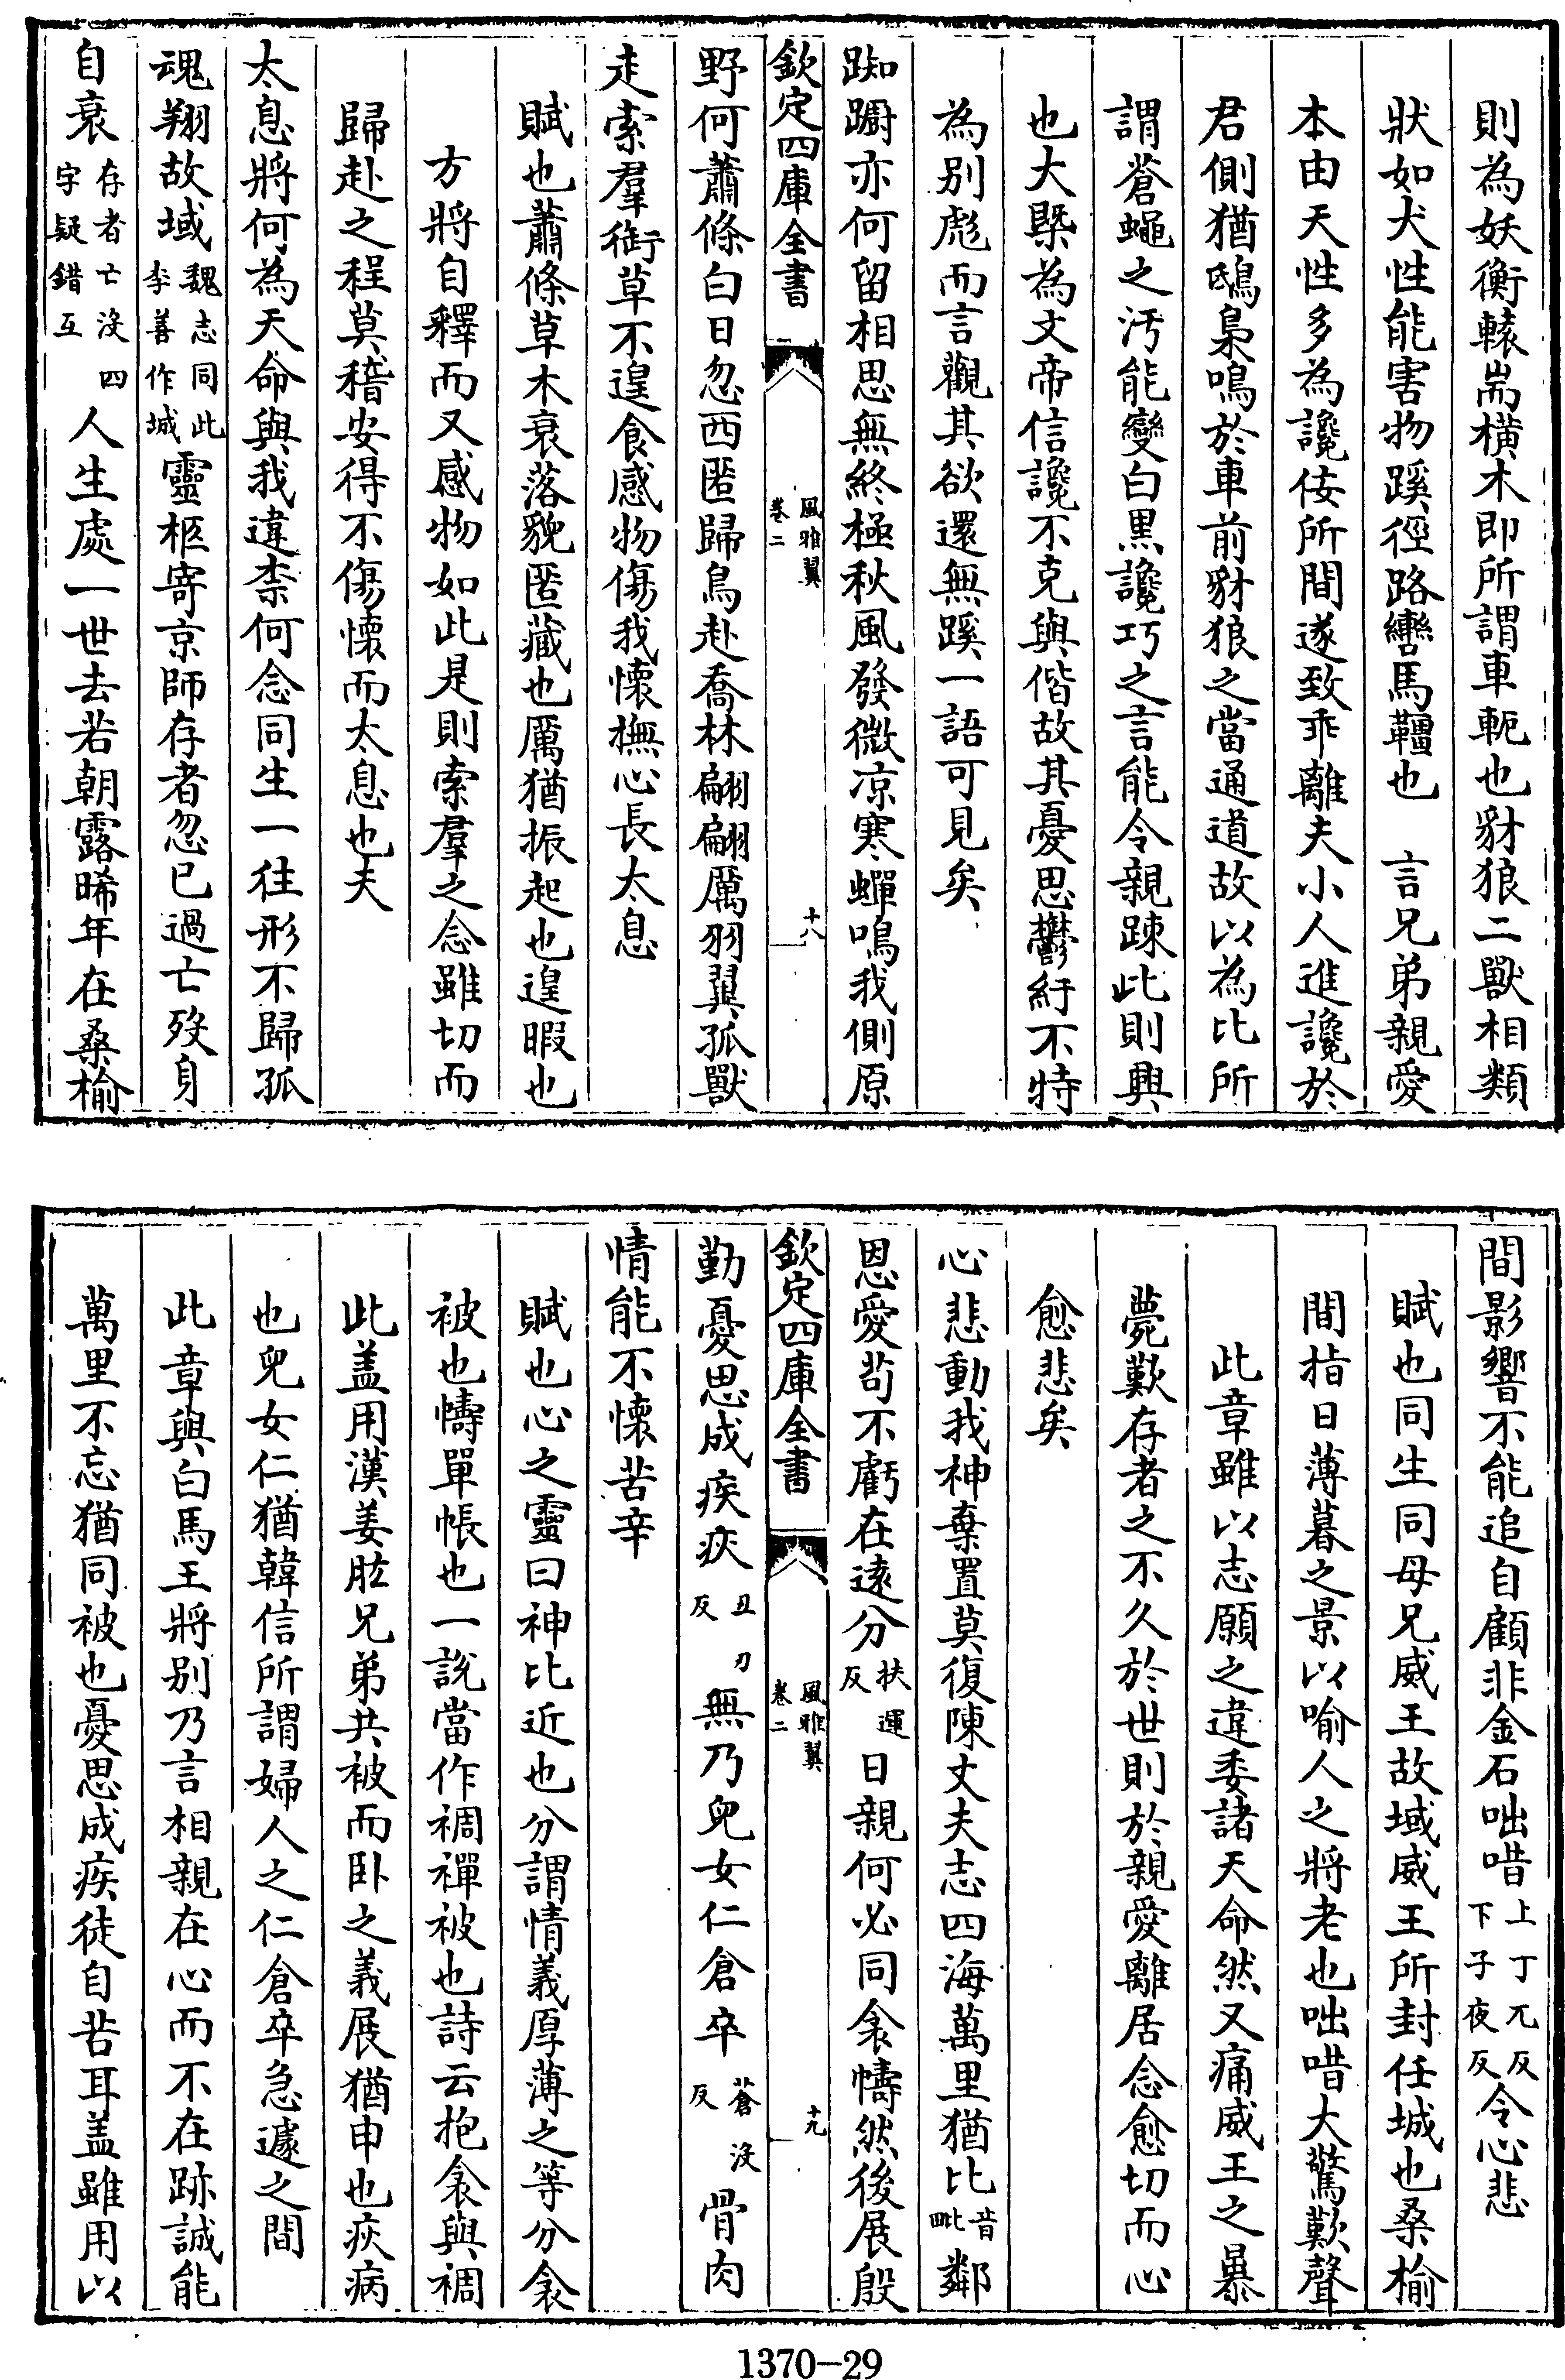 則為妖衡轅耑橫木即所謂車軛也豺狼二獸相類
狀如犬性能害物蹊徑路轡馬韁也　言兄弟親愛
本由天性多為讒佞所間遂致乖離夫小人進讒於
君側猶鴟梟鳴於車前豺狼之當通道故以為比所
謂蒼蠅之汚能變白黒讒巧之言能令親踈此則興
也大槩為文帝信讒不克與偕故其憂思鬱紆不特
為别彪而言觀其欲還無蹊一語可見矣
踟蹰亦何留相思無終極秋風發微凉寒蟬鳴我側原
欽定四庫全書
風雅翼
卷二
十八
野何蕭條白日忽西匿歸鳥赴喬林翩翩厲羽翼孤獸
走索羣銜草不遑食感物傷我懷撫心長太息
賦也蕭條草木衰落貌匿藏也厲猶振起也遑暇也
方將自釋而又感物如此是則索羣之念雖切而
歸赴之程莫稽安得不傷懷而太息也夫
太息將何為天命與我違柰何念同生一往形不歸孤
魂翔故域魏志同此李善作城靈柩寄京師存者忽已過亡歿身
自衰存者亡沒四字疑錯互人生處一世去若朝露晞年在桑榆
間影響不能追自顧非金石咄唶上丁兀反下子夜反令心悲
賦也同生同母兄威王故域威王所封任城也桑榆
間指日薄暮之景以喻人之將老也咄唶大驚歎聲
此章雖以志願之違委諸天命然又痛威王之暴
薨歎存者之不久於世則於親愛離居念愈切而心
愈悲矣
心悲動我神棄置莫復陳丈夫志四海萬里猶比音毗鄰
恩愛苟不虧在逺分扶運反日親何必同衾幬然後展殷
欽定四庫全書
風雅翼
卷二
十九
勤憂思成疾疢丑刃反無乃兒女仁倉卒蒼没反骨肉
情能不懷苦辛
賦也心之靈曰神比近也分謂情義厚薄之等分衾
被也幬單帳也一說當作裯襌被也詩云抱衾與裯
此盖用漢姜肱兄弟共被而卧之義展猶申也疢病
也兒女仁猶韓信所謂婦人之仁倉卒急遽之間
此章與白馬王將别乃言相親在心而不在跡誠能
萬里不忘猶同被也憂思成疾徒自苦耳盖雖用以
1370—29